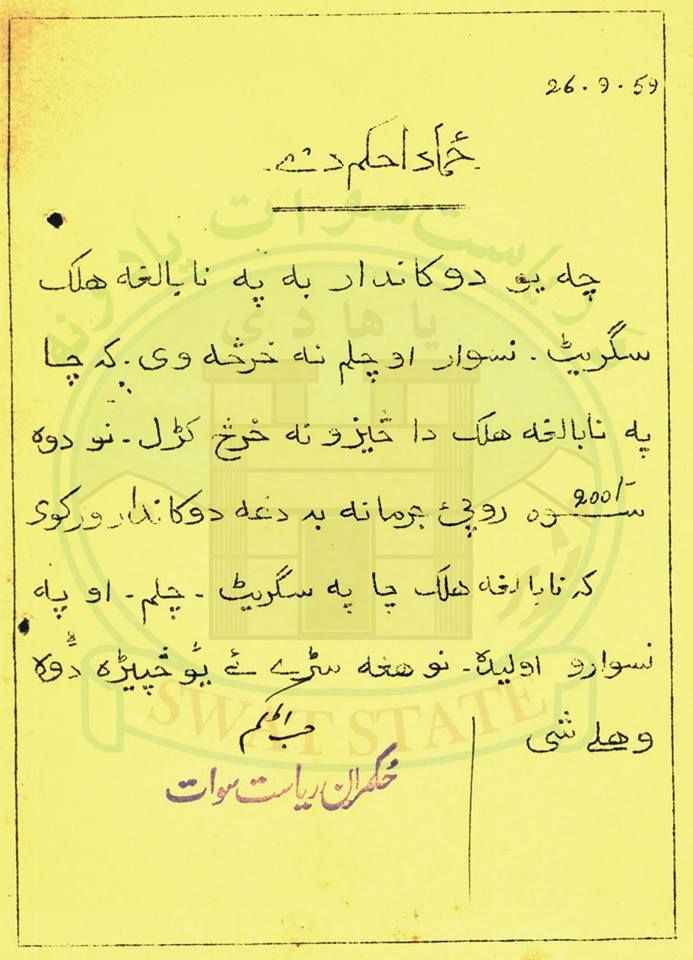 26.9.59
ځما دا حکم دے.
چه یو دوکاندار به په نابالغه هلک
سگریټ. نسوار او چلم نه خرڅه وی. که چا
په نابالغه هلک دا څیزونه خرڅ کړل. نو دوه
200/-
سوه روپئ جرمانه به دغه دوکاندار ورکوی
که نابالغه هلک چا په سگریټ. چلم. او په
نسوارو اولیده. نو هغه سړے ئے یوُ څپیړه دُوه
وهلے شی
حسب الحکم
حُکمران ریاست سوات
ریاست سوات
یا هادی
SWAT STATE